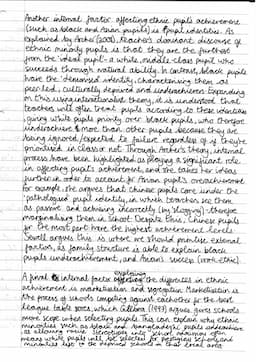 Another internal factor affecting ethnic pupils achievement
(such as black and Asian pupils) is pupil identities. As
explained by Archer (2008), teacher's dominant discourse of
ethnic minority pupils is that they are the furthest
from the 'ideal pupil' - a white, middle-class pupil who
succeeds through natural ability. In contrast, black pupils
have the 'demonised' identity, characterising them as
peer-led, culturally deprived and underachievers. Expanding
on this, using interactionist theory, it is understood that
teachers will often treat pupils according to these
giving white pupils priority over black pupils, who therefore
underachieve more than other pupils because they are
being ignored/expected to failure regardless of if they're
prioritised in class or not. Through Archer's theory, internal
process have been highlighted as playing a significant role
in affecting pupils achievement, and she takes her ideas
further in order to account for Asian pupil's overachievement
for example, she argues that Chinese pupils come under the
'pathologised pupil identity', in which teachers see them
as passive and achieving incorrectly (by slogging), therefore
marginalising them in school. Despite this, Chinese pupils
for the most part have the highest achievement levels.
Sewell argues this is where we should prioritise external
factors, as family structure is able to explain black
pupils underachievement, and Asian's success (work ethic).
A final internal factor explaining the differences in ethnic
achievement is marketisation and segregation. Marketisation is
the process of schools competing against eachother for the best
league table spots, which Gillborn (1997) argues gives schools
more scope when selecting pupils. This can explain why ethnic
minorities such as black and Bangladeshi pupils underachieve
as
means white pupils will be selected for prestigious schools and
minorities